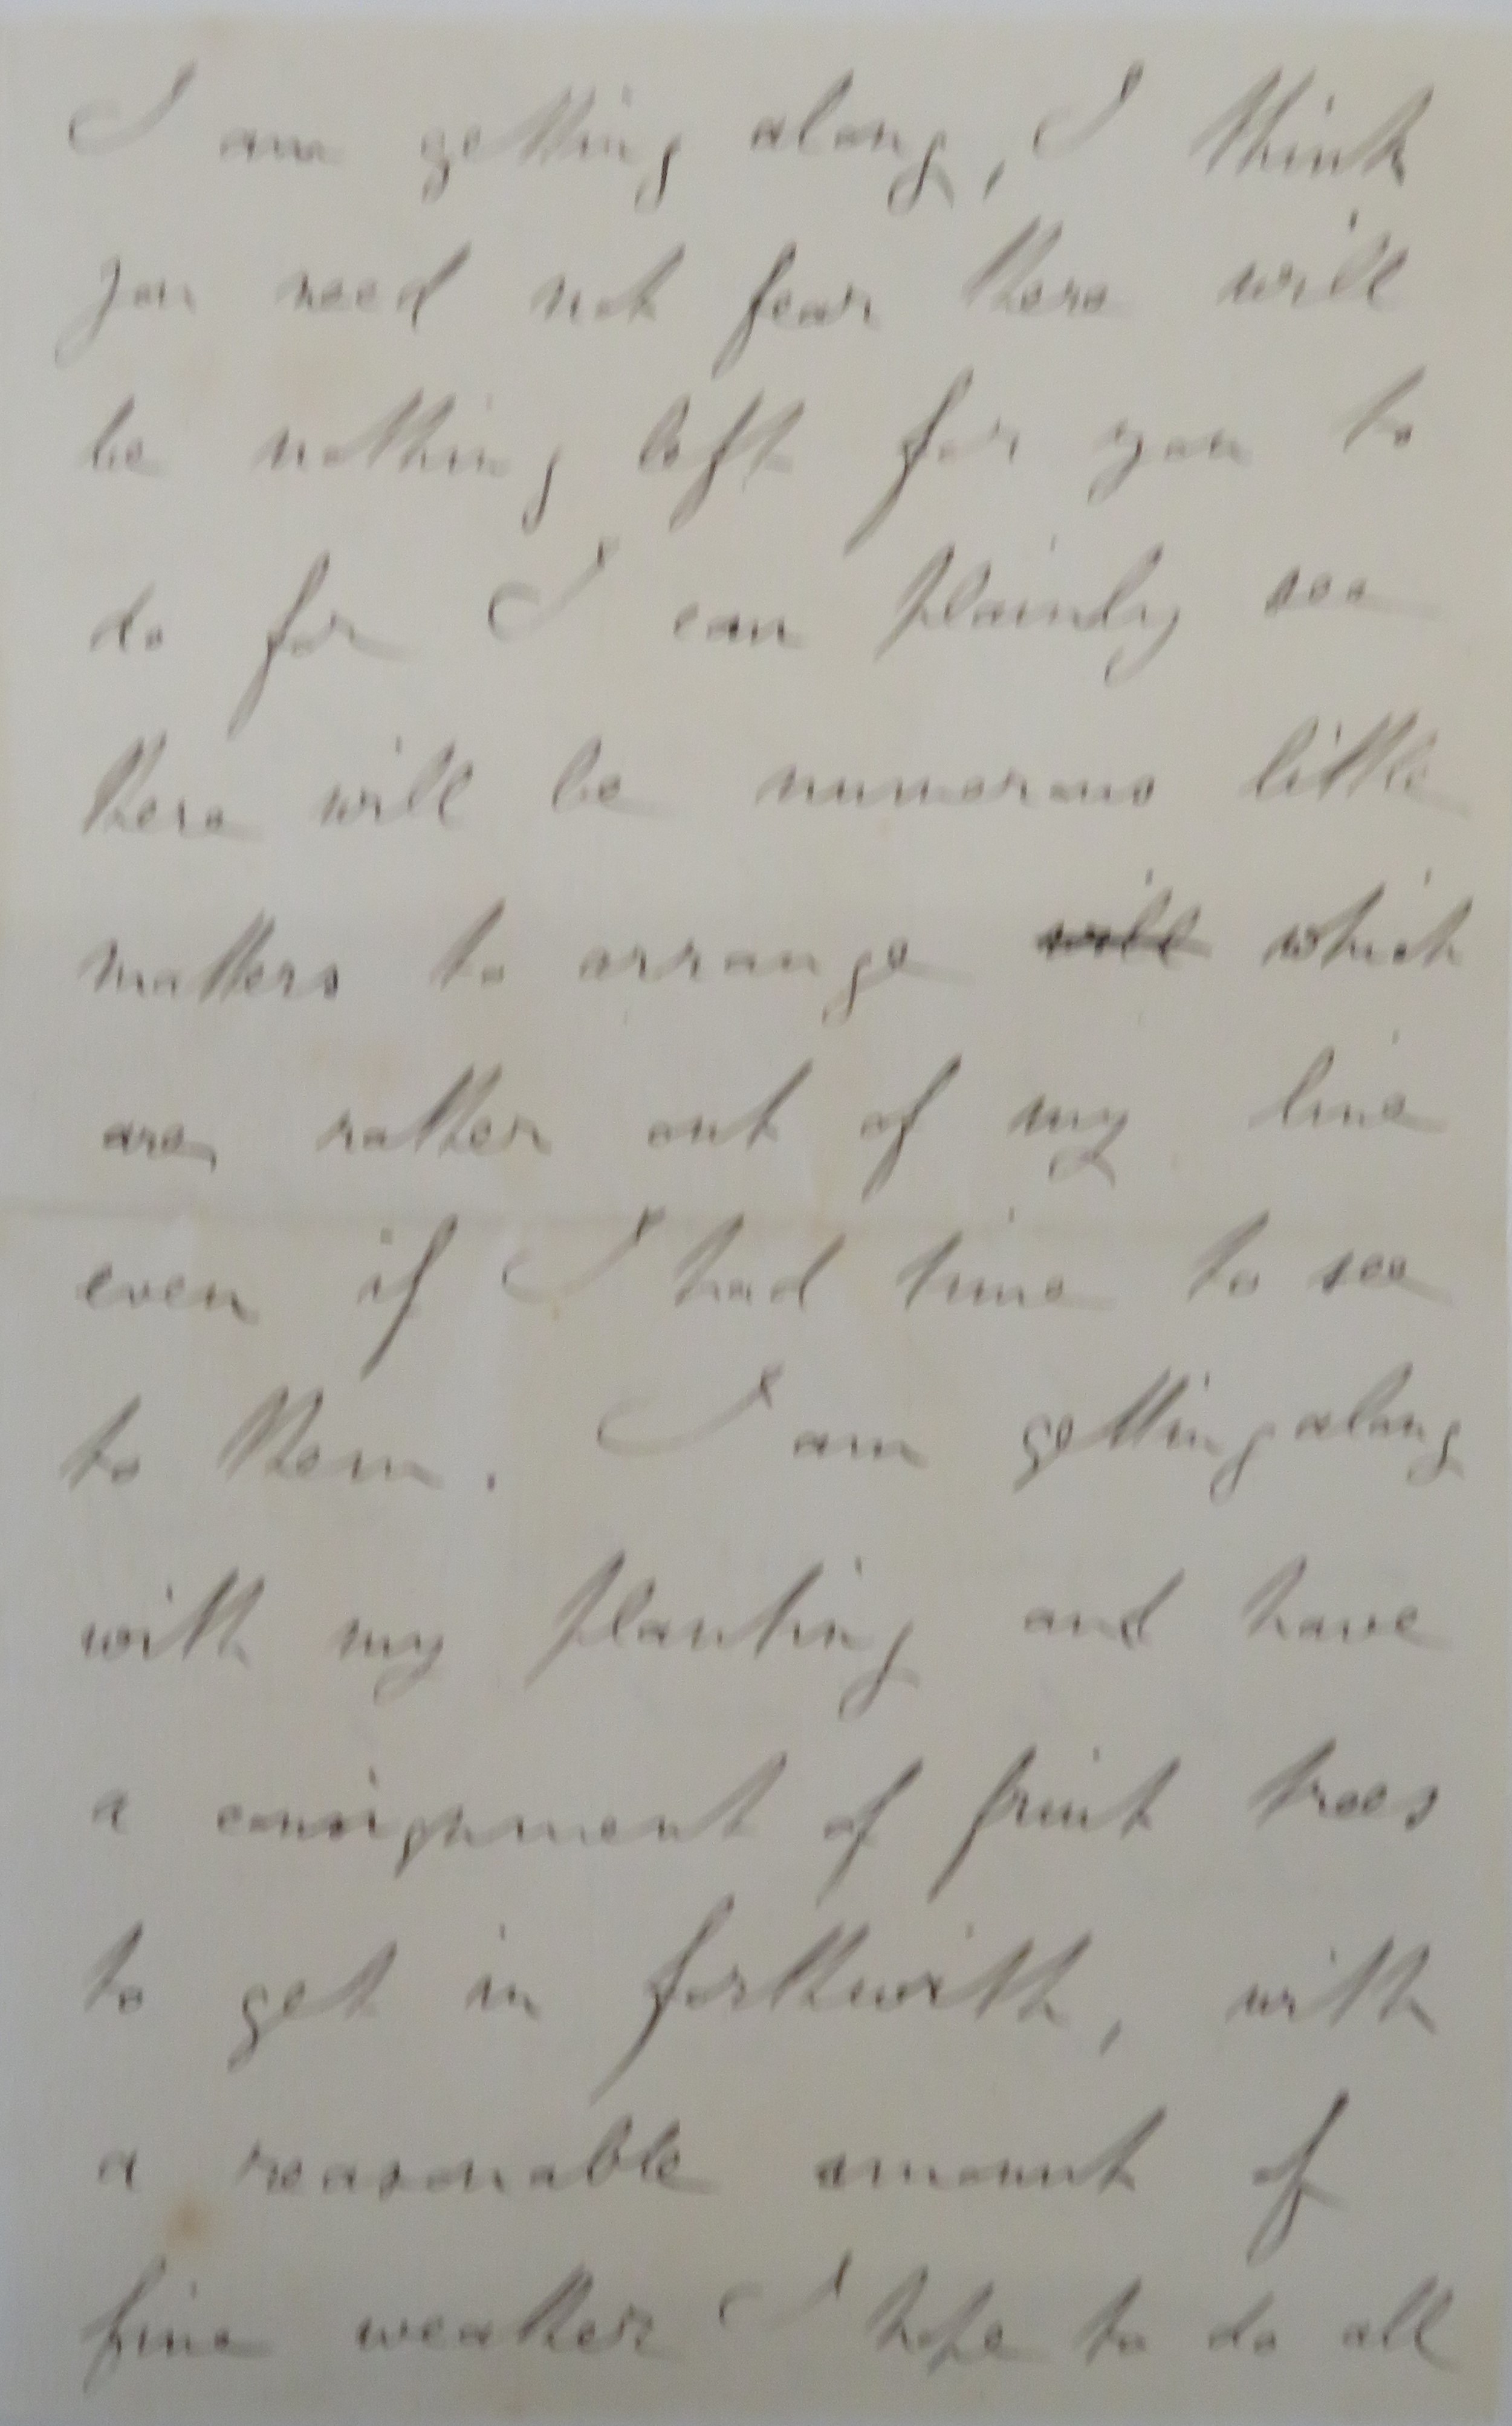 I am getting along, I think
you need not fear there will
be nothing left for you to
do for I can plainly see
there will be numerous little
matters to arrange will which
are rather out of my line
even if I had time to see
to them. I am getting along
with my planting and have
a consignment of fruit trees
to get in forthwith, with
a reasonable amount of
fine weather I hope to do all